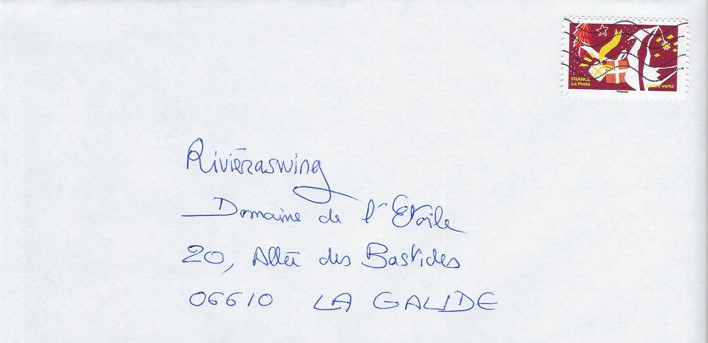 FRANCE
La Poste
Rivièraswing
Domaine de l'Etoile
20, Allée des Bastides
06610 LA GALIDE